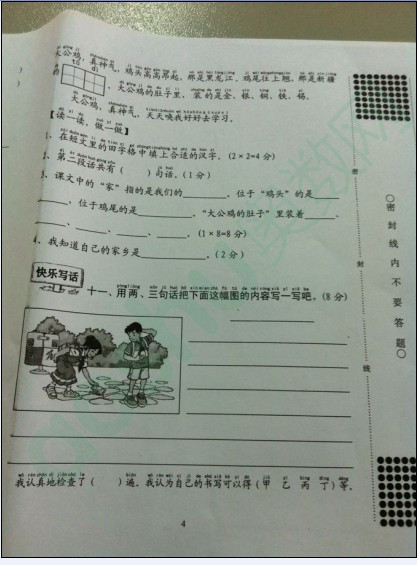 大公鸡，真神气，鸡头高高昂起。那是黑龙江，鸡尾往上翘，那是新疆
的 ，大公鸡的肚子里，装的是金、银、铜、铁、锡。
大公鸡，真神气，天天唤我好好去学习。
【读一读，做一做】
1、在短文里的田字格中填上合适的汉字。(2×2=4分)
2、第二段话共有( )句话。(1分)
3、课文中的“家”指的是我们的 ，位于“鸡头”的是
，位于鸡尾的是 ，“大公鸡的肚子”里装着 、
、 、 、 。(1×8=8分)
4、我知道自己的家乡是 。(2分)
快乐写话
十一、用两、三句话把下面这幅图的内容写一写吧。(8分)
我认真地检查了( )遍。我认为自己的书写可以得(甲 乙 丙 丁)等。
4
密 封 线
○密封线内不要答题○